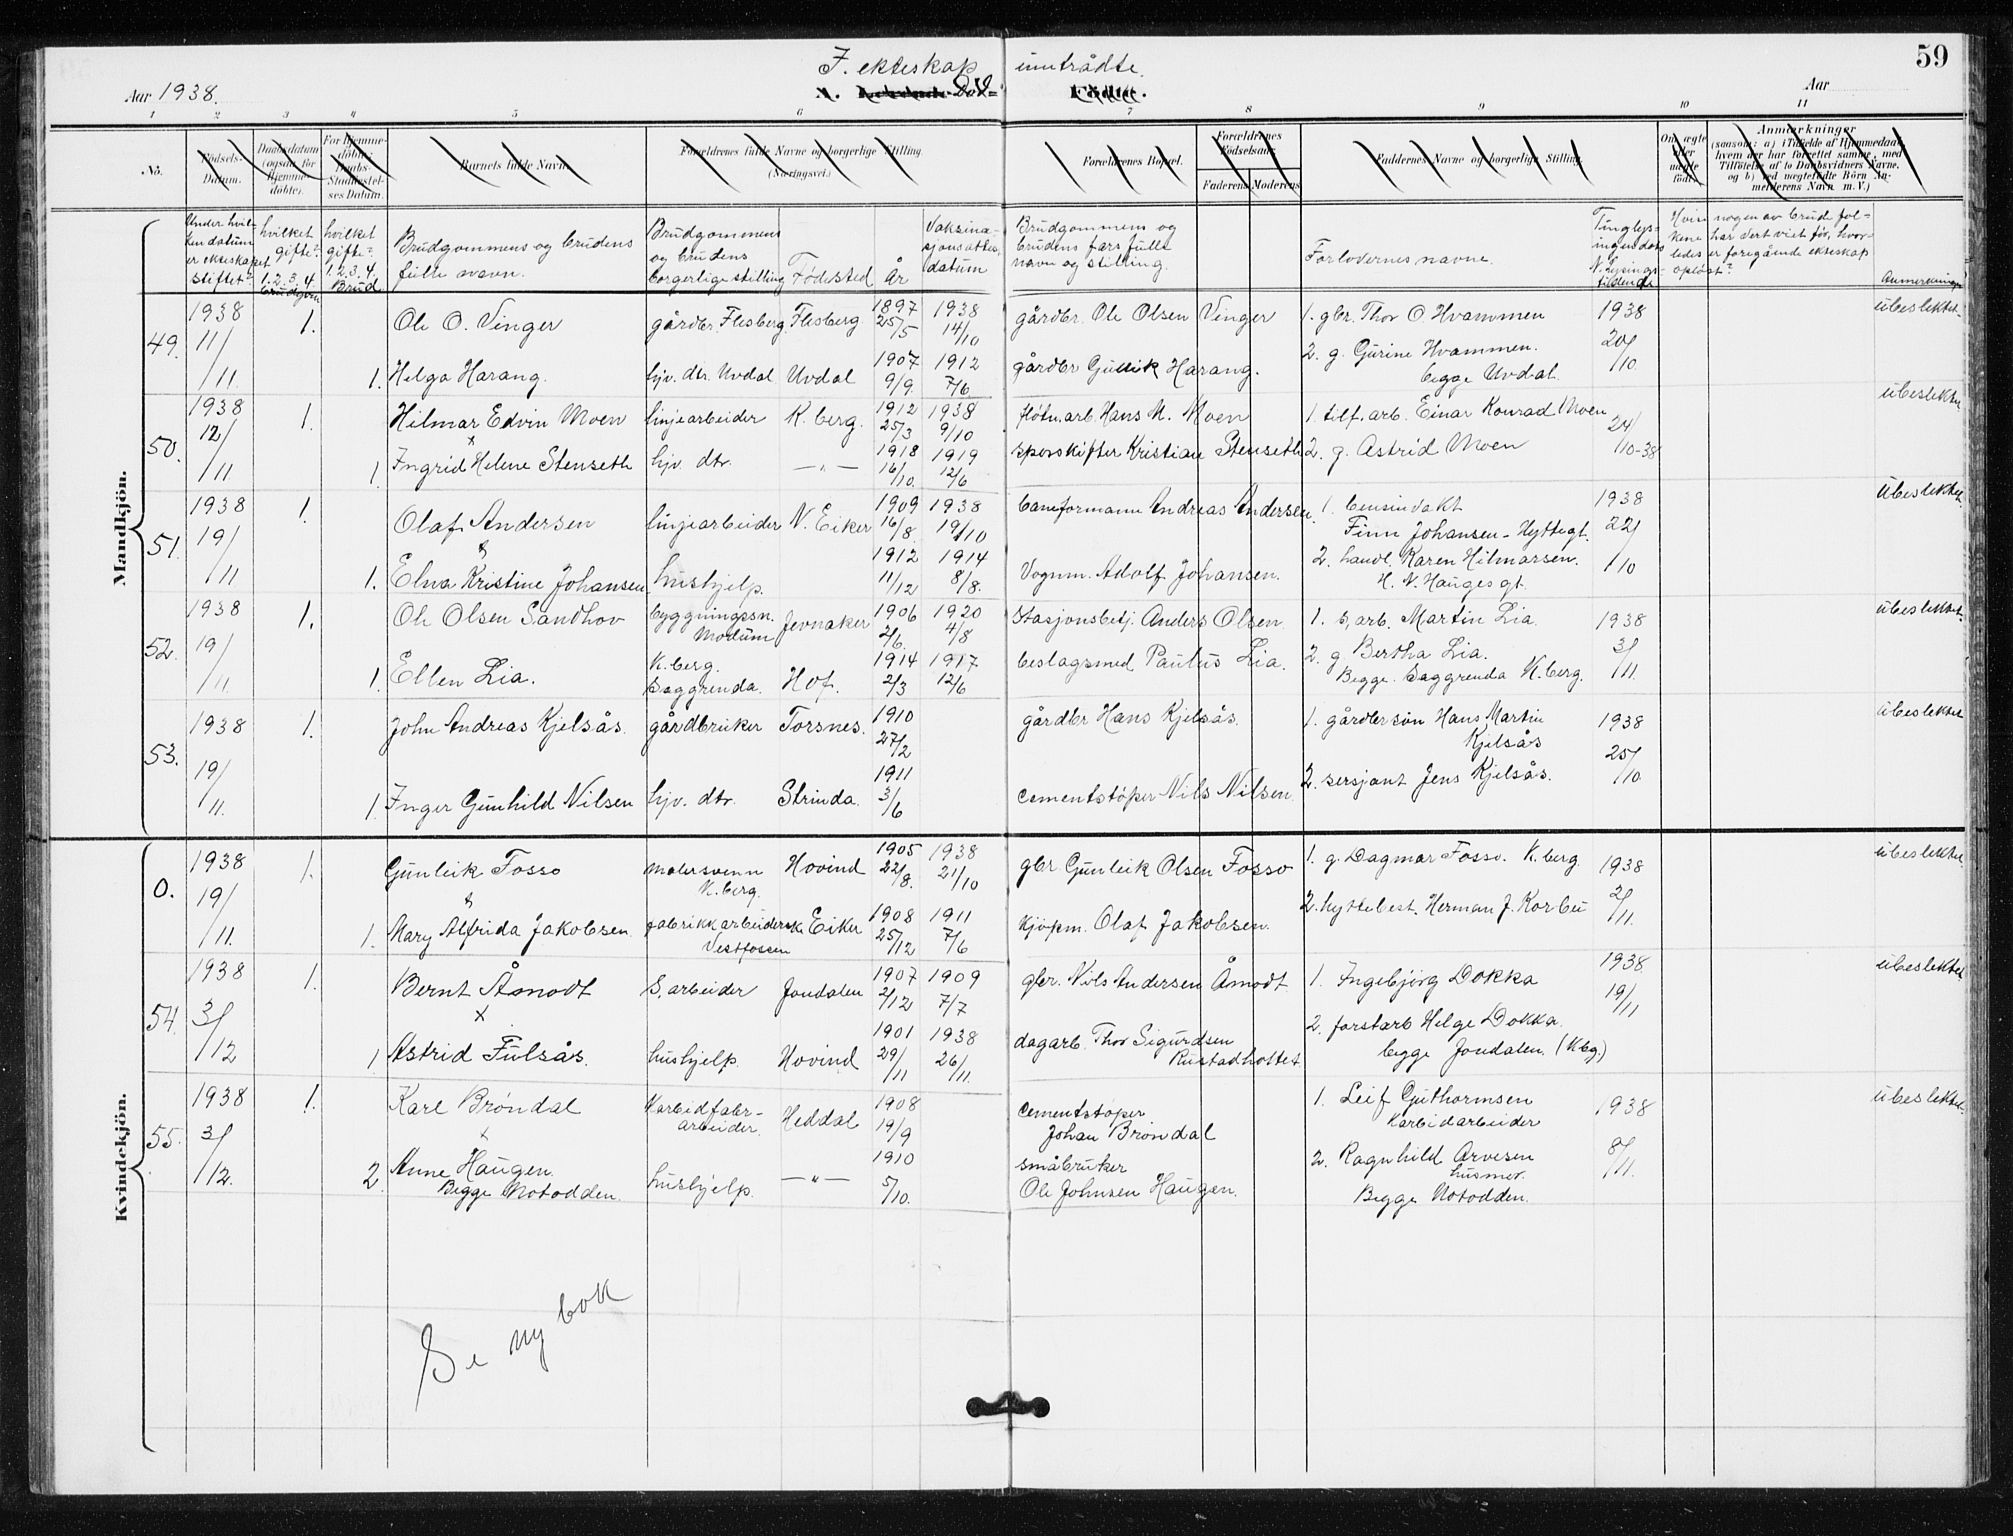 59
I. ekteskap inntrådte.
Aar 1938.
Aar
1 2 3 4 5 6 7 8 9 10 11
No.
Födsels-Datum.
Daabsdatum (ogsaa for Hjemmedöbte).
For Hjemmedöbte: Daabs-Stadfæstelses Datum.
Barnets fulde Navn.
Forældrenes fulde Navne og borgerlige Stilling. (Næringsvei.)
Forældrenes Bopæl.
Forældrenes Födselsaar.
Faderens Moderens
Faddernes Navne og borgerlige Stilling.
Om ægte eller uægte födt.
Anmærkninger
(saasom: a) i Tilfælde af Hjemmedaab, hvem der har forrettet samme, med Tilföielse af to Daabsvidners Navne, og b) ved uægtefödte Börn Anmelderens Navn m. V.)
Under hvilken datum er ekteskapet stiftet?
hvilket gifte? 1.2.3.4. Brudgom
hvilket gifte? 1.2.3.4. Brud
Brudgommens og brudens fulle navn.
Brudgommens og brudens borgerlige stilling
Fødested
År
Vaksinasjonsattes. datum
Brudgommens og brudens fars fulle navn og stilling.
Forlovernes navne.
Hvis nogen av brudefolkene har vert viet før, hvorledes er foregående ekteskap opløst?
Anmerkninger
Mandkjön.
49. 1938 11/11 1. Ole O. Vinger gårdbr. Flesberg. Flesberg 1897 25/5 1938 14/10 gårdbr. Ole Olsen Vinger 1. gbr. Thor O. Hvammen 1938 20/10 ubeslektet
1. Helga Harang. hjv. dtr. Uvdal Uvdal 1907 9/9. 1912 7/6 gårdbr Gullik Harang. 2. g. Gurine Hvammen. begge Uvdal.
50. 1938 12/11 1. Hilmar Edvin Moen linjearbeider K.berg. 1912 25/3 1938 9/10 fløtn.arb. Hans M. Moen 1. tilf. arb. Einar Konrad Moen 24/10-38 ubeslektet
1 Ingrid Helene Stenseth hjv. dtr. —"— 1918 16/10. 1919 12/6 sporskifter Kristian Stenseth 2. g. Astrid Moen
51. 1938 19/11 1. Olaf Andersen linjearbeider N. Eiker 1909 16/8. 1938 19/10 baneformann Andreas Andersen 1. bensindakt Finn Johansen - Hyttegt. 1938 22/10 ubeslektet
& 1. Elna Kristine Johansen hushjelp. 1912 11/12 1914 8/8. Vognm. Adolf Johansen. 2. handl. Karen Hilmarsen. H. N. Hauges gt.
52. 1938 19/11 1. Ole Olsen Sandhov bygningssn. Modum Jevnaker 1906 2/6. 1920 4/8 Stasjonsbetj. Anders Olsen. 1. S, arb. Martin Lia. 1938 3/11. ubeslektet
1. Ellen Lia. K.berg. Saggrenda. Hof. 1914 2/3 1917 12/6 beslagsmed Paulus Lia. 2. g Bertha Lia. Begge. Saggrenda K.berg.
53. 1938 19/11. 1. John Andreas Kjelsås. gårdbruker Torsnes. 1910 27/2 gårdbr Hans Kjelsås. 1. gårdbr søn Hans Martin Kjelsås 1938 25/10 ubeslektet
1. Inger Gunhild Nilsen hjv. dtr. Strinda. 1911 3/6 cementstøper Nils Nilsen. 2. sersjant Jens Kjelsås.
Kvindekjön.
0. 1938 19/11. 1. Gunleik Fosso malersvenn K.berg. Hovind 1905 22/8. 1938 21/10 gbr. Gunleik Olsen Fosso 1. g. Dagmar Fosso. K.berg 1938 2/11. ubeslektet.
& 1. Mary Alfrida Jakobsen. fabrikkarbeidersk. Vestfossen Eiker 1908 25/12 1911 7/6 Kjøpm. Olaf Jakobsen. 2. hyttebest. Herman J. Korbu
54. 1938 3/12 1. Bernt Åmodt S, arbeider Jondalen 1907 2/12 1909 7/7 gbr. Nils Andersen Åmodt 1. Ingebjørg Dokka 1938 19/11 ubeslektet
x 1 Astrid Fulsås. hushjelp. Hovind 1901 29/11 1938 26/11. dagarb. Thor Sigurdsen Rustadhottet 2. forstarb Helge Dokka. begge Jondalen. (Kbg.)
55. 1938 3/12. 1. Karl Brøndal Karbidfabr- arbeider. Heddal 1908 19/9 cementstøper Johan Brøndal 1. Leif Guthormsen Karbidarbeider 1938 8/11. ubeslektet
x 2 Anne Haugen. Begge Notodden. hushjelp. —"— 1910 5/10. småbruker Ole Johnsen Haugen. 2. Ragnhild Arvesen husmor. Begge Notodden.
Se ny bok